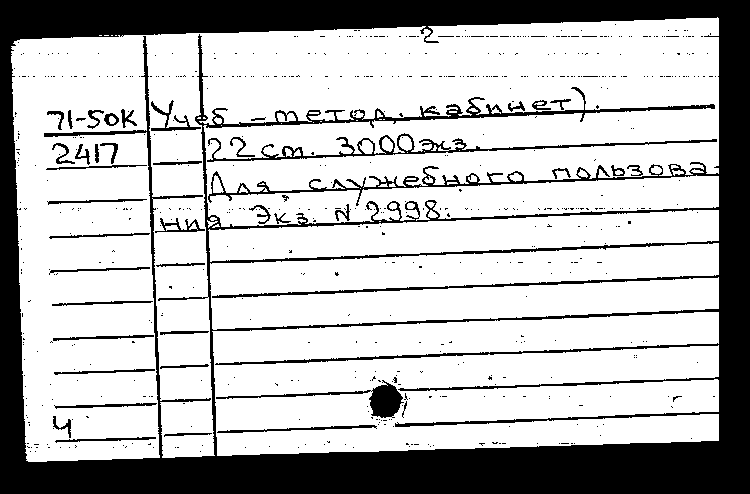 2
71-50К Учеб.-метод. кабинет).
2417 22 см. 3000 экз.
Для служебного пользова-
ния. Экз. N 2998.
Ч